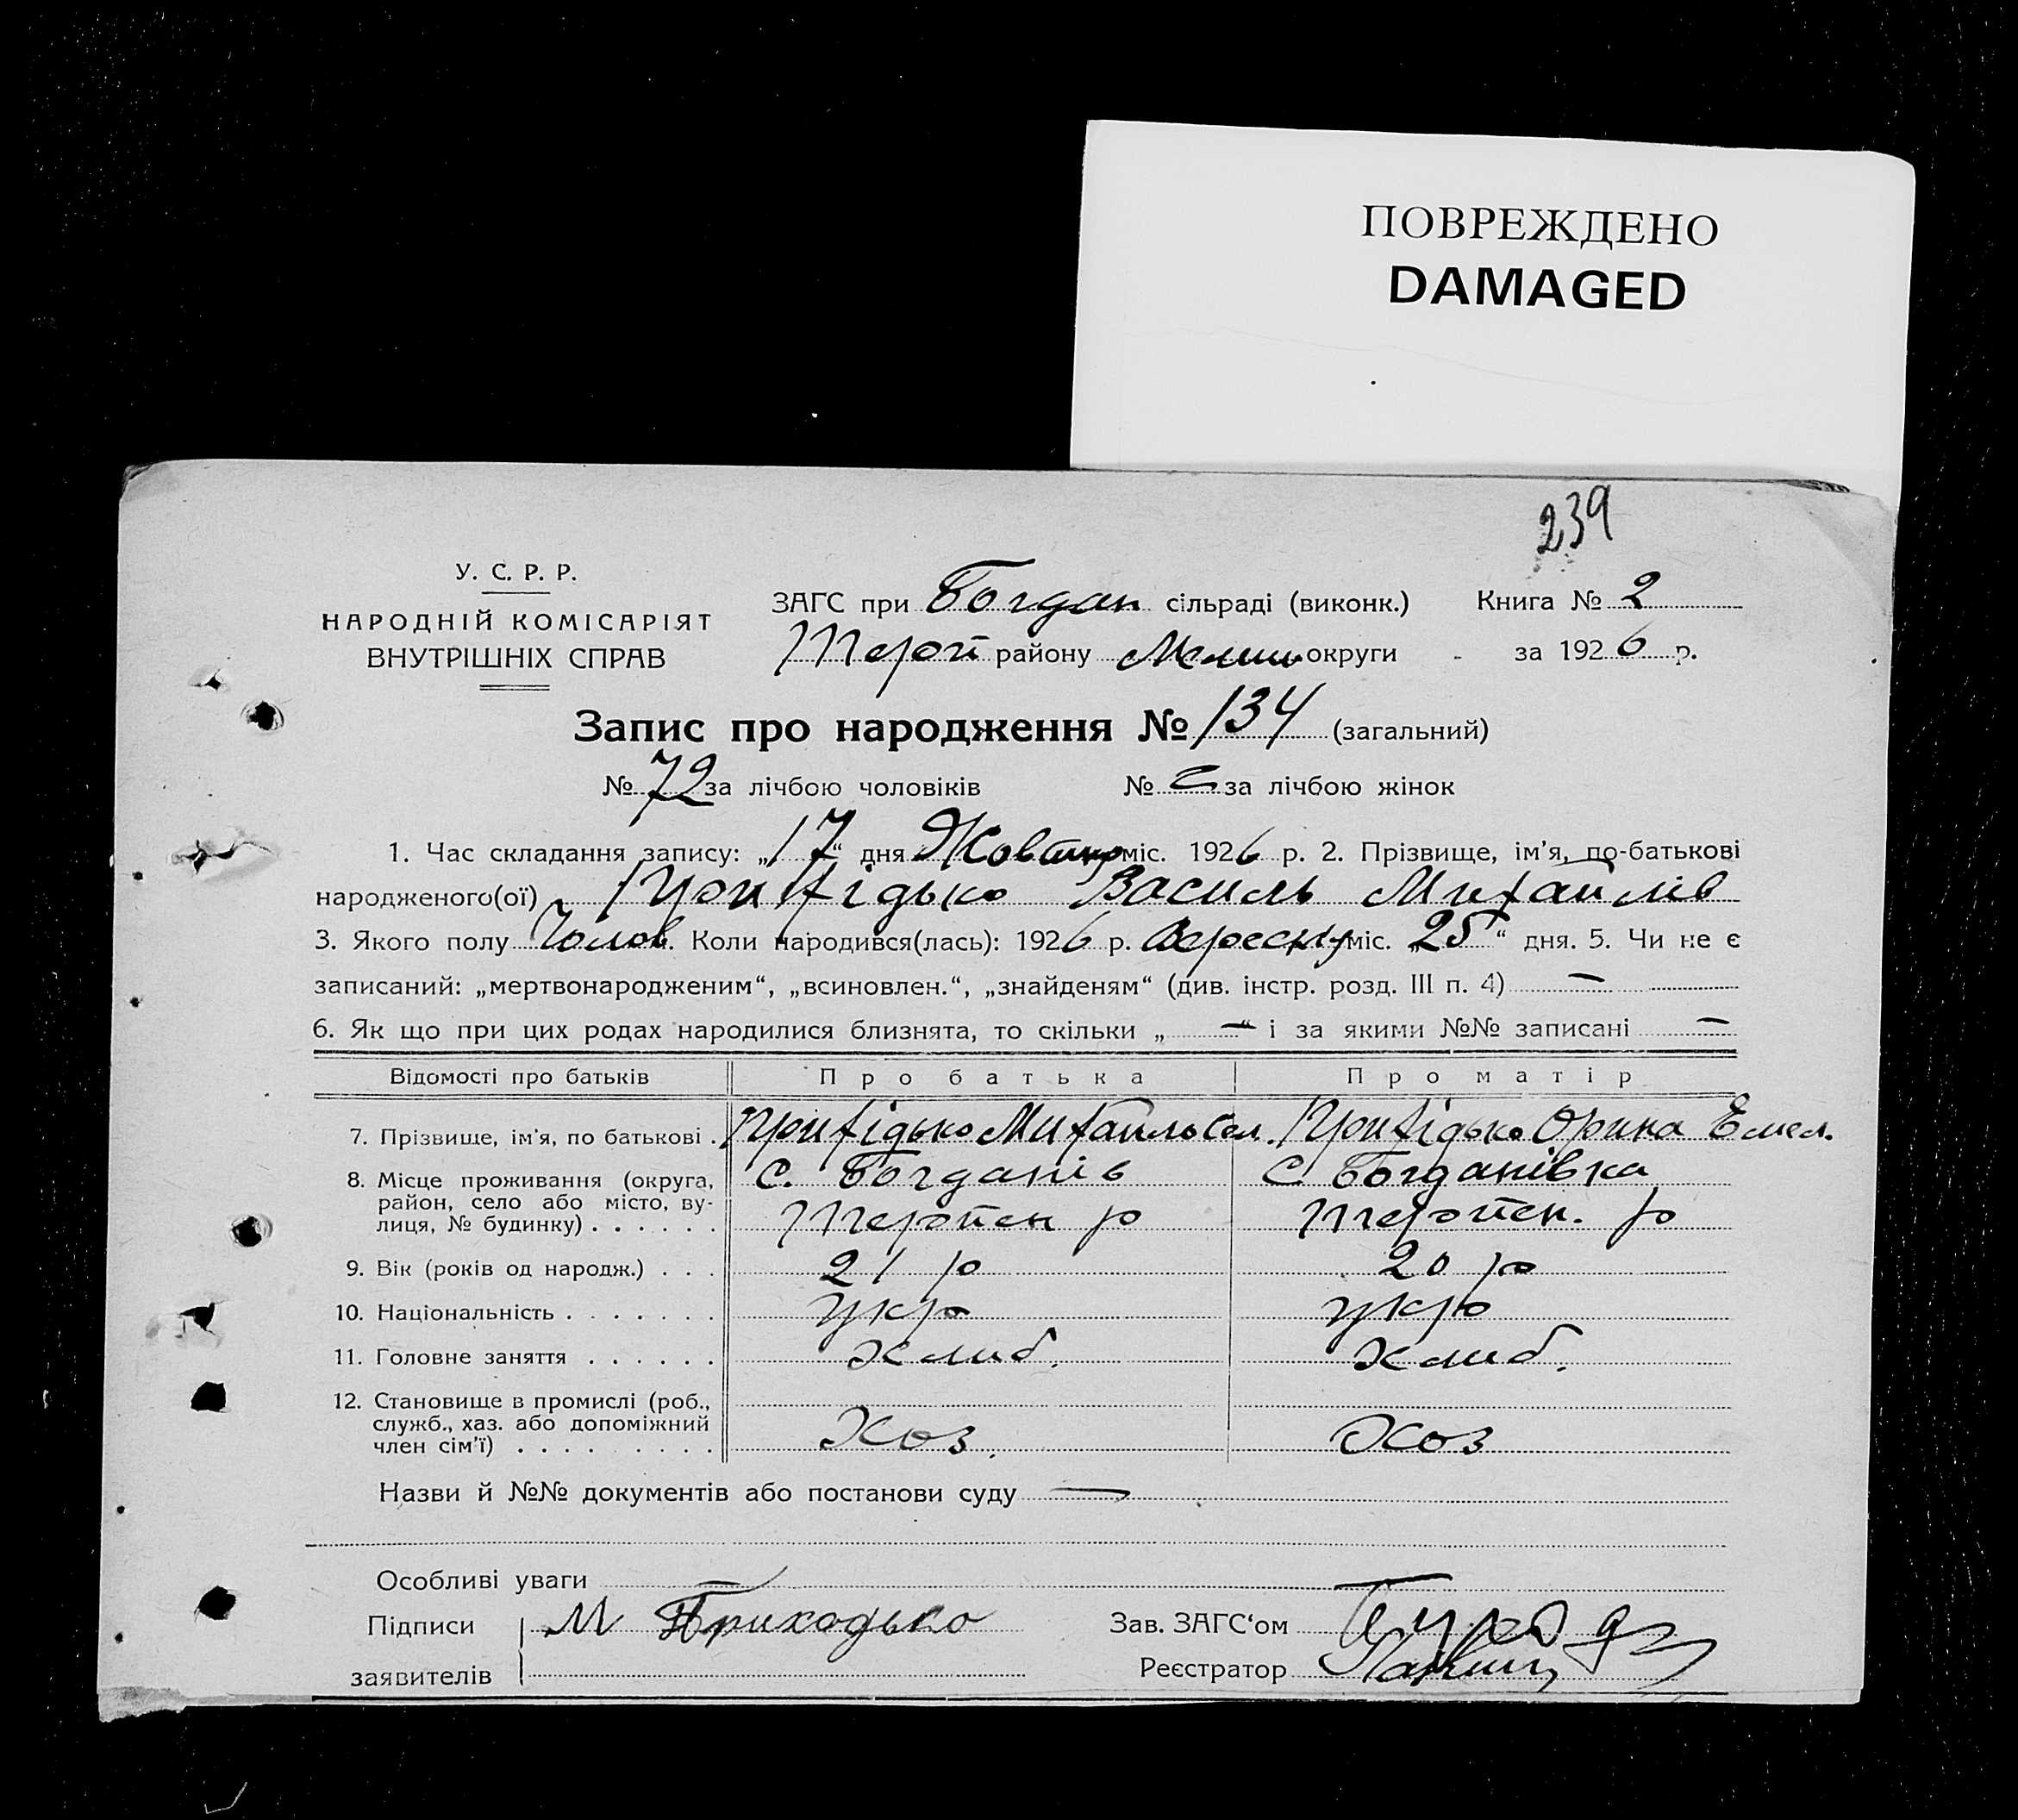 ПОВРЕЖДЕНО
DAMAGED
239
У. С. Р. Р.
НАРОДНІЙ КОМІСАРІЯТ
ВНУТРІШНІХ СПРАВ
ЗАГС при Богдан сільраді (виконк.) Книга № 2
району округи за 1926 р.
Запис про народження № 134 (загальний)
№ 72 за лічбою чоловіків № за лічбою жінок
1. Час складання запису: „17“ дня Жовтня міс. 1926 р. 2. Прізвище, ім'я, по-батькові
народженого(ої) Прихідько Василь Михайлів
3. Якого полу Чолов. Коли народився(лась): 1926 р. Вересня міс. „25“ дня. 5. Чи не є
записаний: „мертвонародженим“, „всиновлен.“, „знайденям“ (див. інстр. розд. III п. 4) —
6. Як що при цих родах народилися близнята, то скільки „—“ і за якими №№ записані —
Відомості про батьків Про батька Про матір
7. Прізвище, ім'я, по батькові . Прихідько Михайло Сем. Прихідько Орина Емел.
8. Місце проживання (округа, с. Богданів с Богданівка
район, село або місто, ву-
лиця, № будинку) . . . . . . Терпен р Терпен. р
9. Вік (років од народж.) . . . 21 р 20 р
10. Національність . . . . . . . укр укр
11. Головне заняття . . . . . . хлиб. хлиб.
12. Становище в промислі (роб.,
служб., хаз. або допоміжний
член сім'ї) . . . . . . . . . Хоз. Хоз
Назви й №№ документів або постанови суду —
Особливі уваги —
Підписи М Приходько Зав. ЗАГС'ом
заявителів Реєстратор